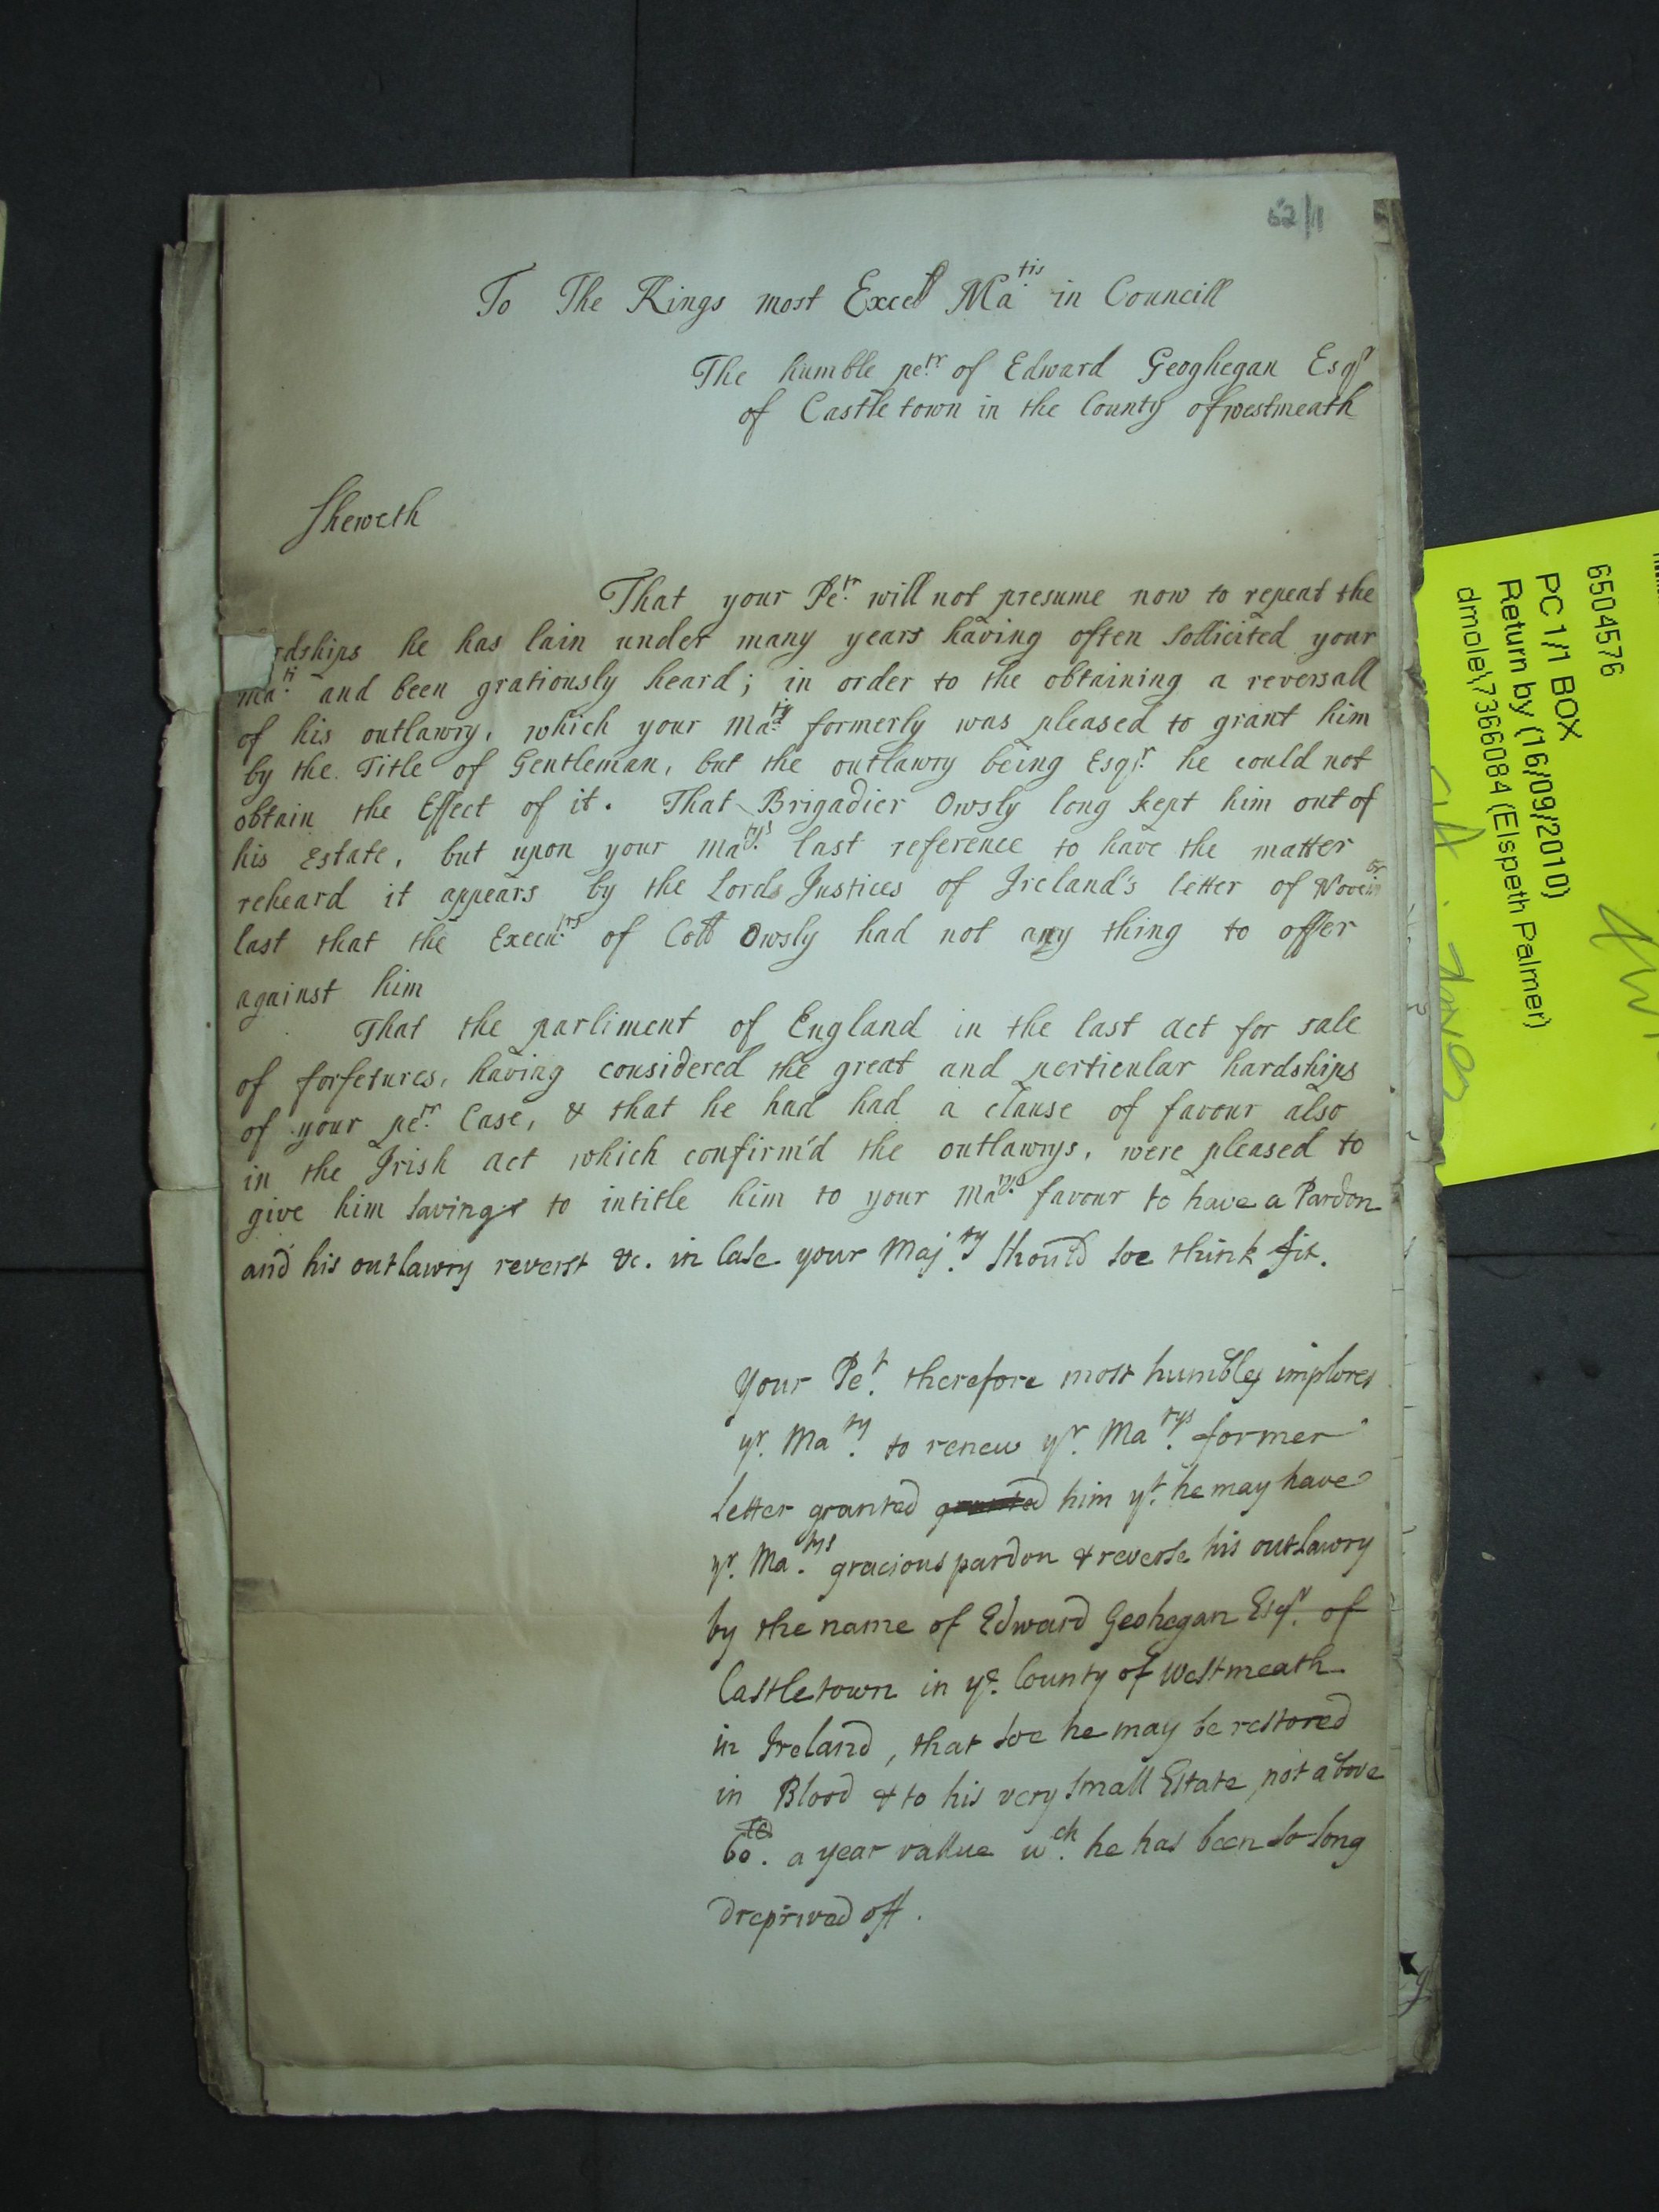 62/1
To The Kings most Excell Ma.tis in Councill
The humble pe.tr of Edward Geoghegan Esqr
of Castletown in the County of westmeath
Sheweth
That your Pe.tr will not presume now to repeat the
rdships he has lain under many years having often sollicited your
ma.ti and been gratiously heard; in order to the obtaining a reversall
of his outlawry, which your Ma.ty formerly was pleased to grant him
by the Title of Gentleman, but the outlawry being Esqr. he could not
obtain the Effect of it. That Brigadier Owsly long kept him out of
his Estate, but upon your Ma.tys last reference to have the matter
reheard it appears by the Lords Justices of Ireland's letter of Novembr
last that the Execu.trs of Coll Owsly had not any thing to offer
against him
That the parliment of England in the last act for sale
of forfetures, having considered the great and perticular hardships
of your pe.trs Case, & that he had had a clause of favour also
in the Irish act which confirm'd the outlawrys, were pleased to
give him savings to intitle him to your Ma.tys favour to have a Pardon
and his outlawry reverst &c. in Case your Maj.ty should soe think fit.
Your Pe.t therefore most humbley implores
yr. Ma.ty to renew yr. Ma.tys former
Letter granted granted him yt. he may have
yr. Ma.tys gracious pardon & reverse his outlawry
by the name of Edward Geohegan Esqr. of
Castletown in ye. County of Westmeath
in Ireland, that soe he may be restored
in Blood & to his very small Estate not above
60. a year vallue wch. he has been so long
dreprived off.
6504576
PC 1/1 BOX
Return by (16/09/2010)
dmole\7366084 (Elspeth Palmer)